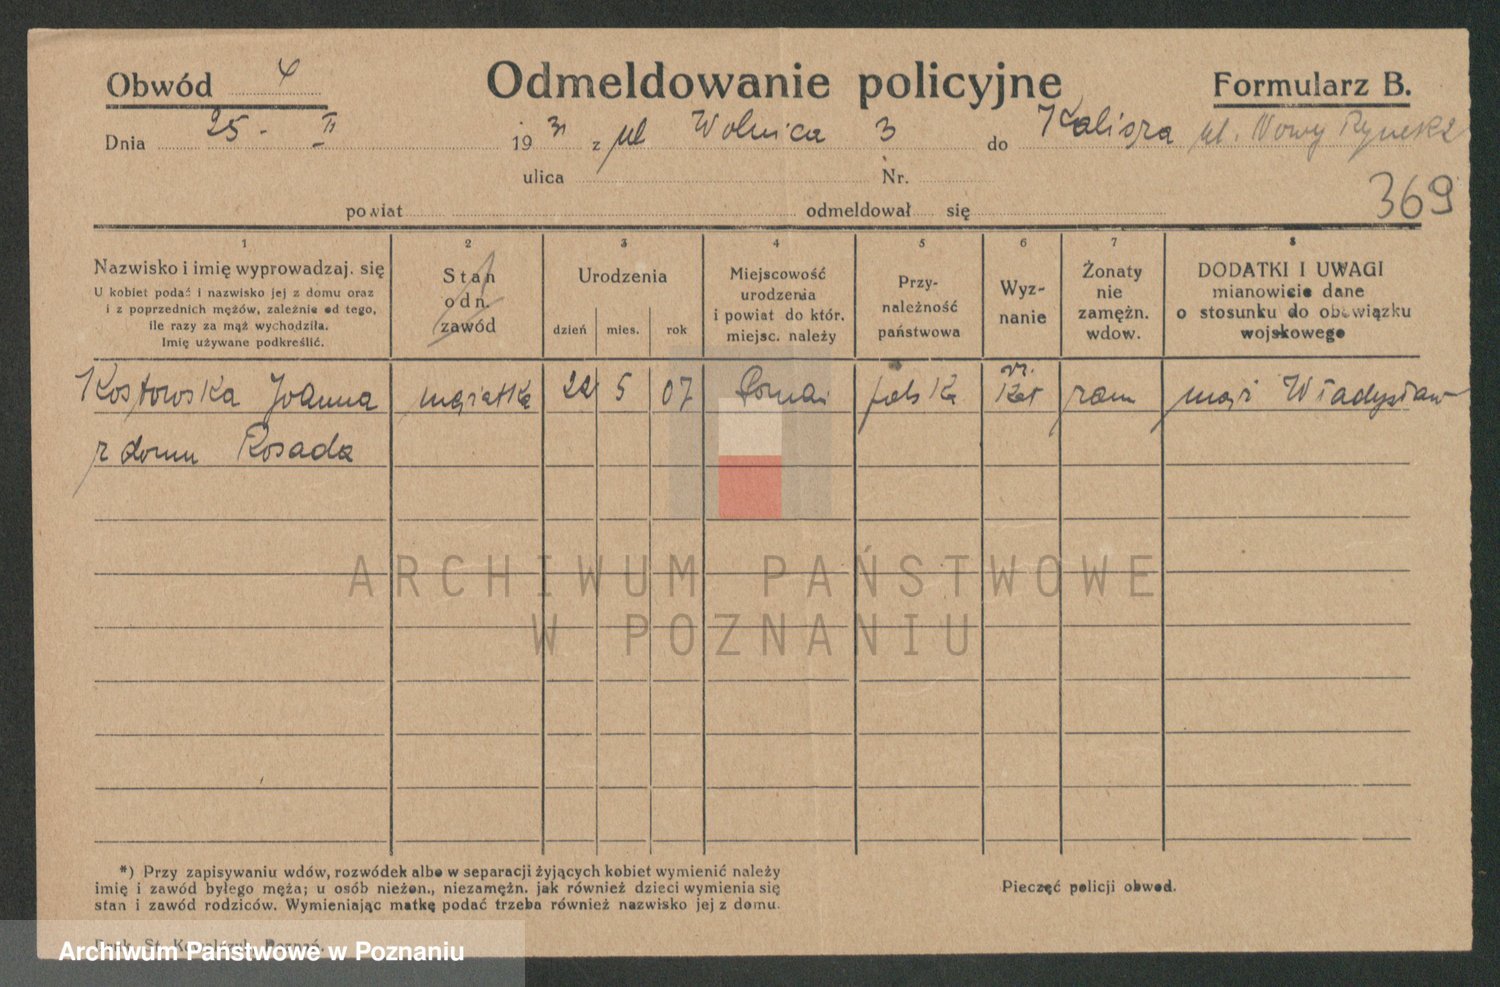 Obwód 4
Odmeldowanie policyjne
Formularz B.
Dnia 25 - II 1931 z pl Wolnica 3 do Kalisza pl. Nowy Rynek 2
ulica Nr.
369
powiat odmeldował się
1 2 3 4 5 6 7 8
Nazwisko i imię wyprowadzaj. się
U kobiet podać i nazwisko jej z domu oraz
i z poprzednich mężów, zależnie od tego,
ile razy za mąż wychodziła.
Imię używane podkreślić.
Stan
odn.
zawód
Urodzenia
dzień mies. rok
Miejscowość
urodzenia
i powiat do któr.
miejsc. należy
Przy-
należność
państwowa
Wyz-
nanie
Żonaty
nie
zamężn.
wdow.
DODATKI I UWAGI
mianowicie dane
o stosunku do obowiązku
wojskowego
Kostowska Joanna mężatka 22 5 07 polska rz. kat zam mąż Władysław
z domu Rosada
ARCHIWUM PAŃSTWOWE
W POZNANIU
*) Przy zapisywaniu wdów, rozwódek albo w separacji żyjących kobiet wymienić należy
imię i zawód byłego męża; u osób nieżon., niezamężn. jak również dzieci wymienia się
stan i zawód rodziców. Wymieniając matkę podać trzeba również nazwisko jej z domu.
Pieczęć policji obwod.
Druk. St. Poznań.
Archiwum Państwowe w Poznaniu